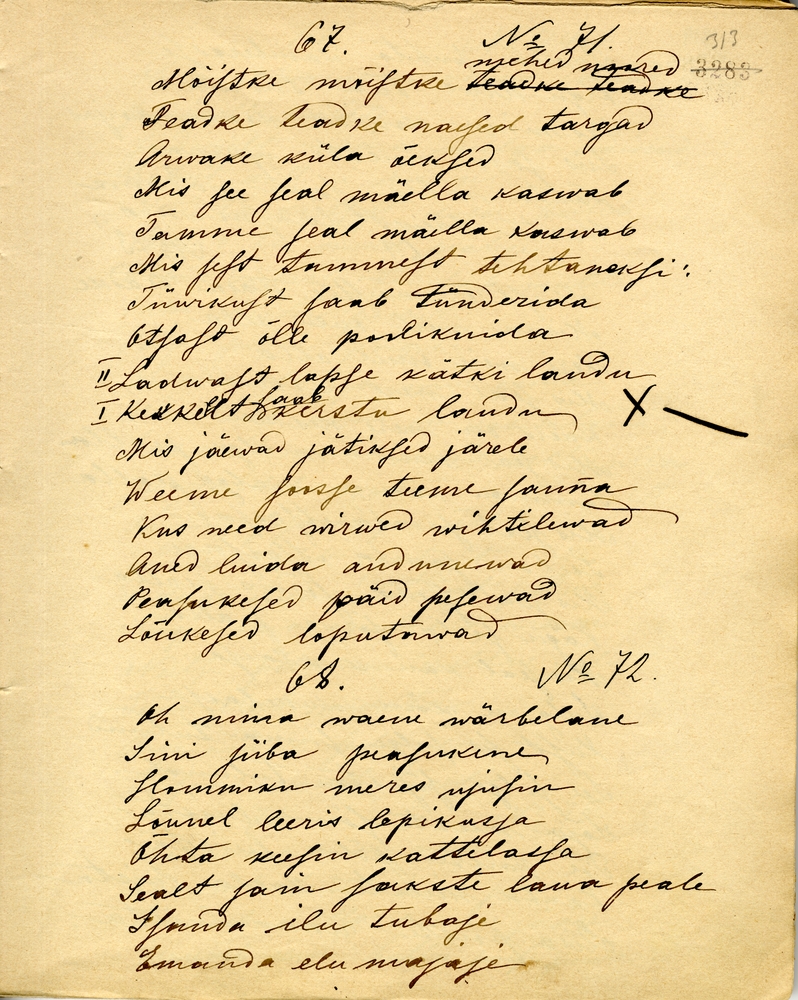 67. No 71. 313
mehed noored 3283
Mõistke mõistke teadke teadke
Teadke teadke naesed targad
Arwake küla õeksed
Mis see seal mäella kaswab
Tamme seal mäella kaswab
Mis sest tammest tehtaneksi:
Tüwikust saab tünderida
Otsast õlle poolikuida
II Ladwast lapse kätki laudu
saab
I Keskelt kerstu laudu X —
Mis jäewad jätiksed järele
Weeme soosse teeme sauna
Kus need wirwed wihtlewad
Aned luida andunewad
Peasukesed päid pesewad
Lõukesed loputawad
68. No 72.
Oh mina waene wärbelane
Sini siiba peasukene
Hommiku meres ujusin
Lõunel leeris lepikusja
Õhta keesin kattelassa
Sealt sain sakste laua peale
Isanda ilu tubaje
Emanda elu majaje